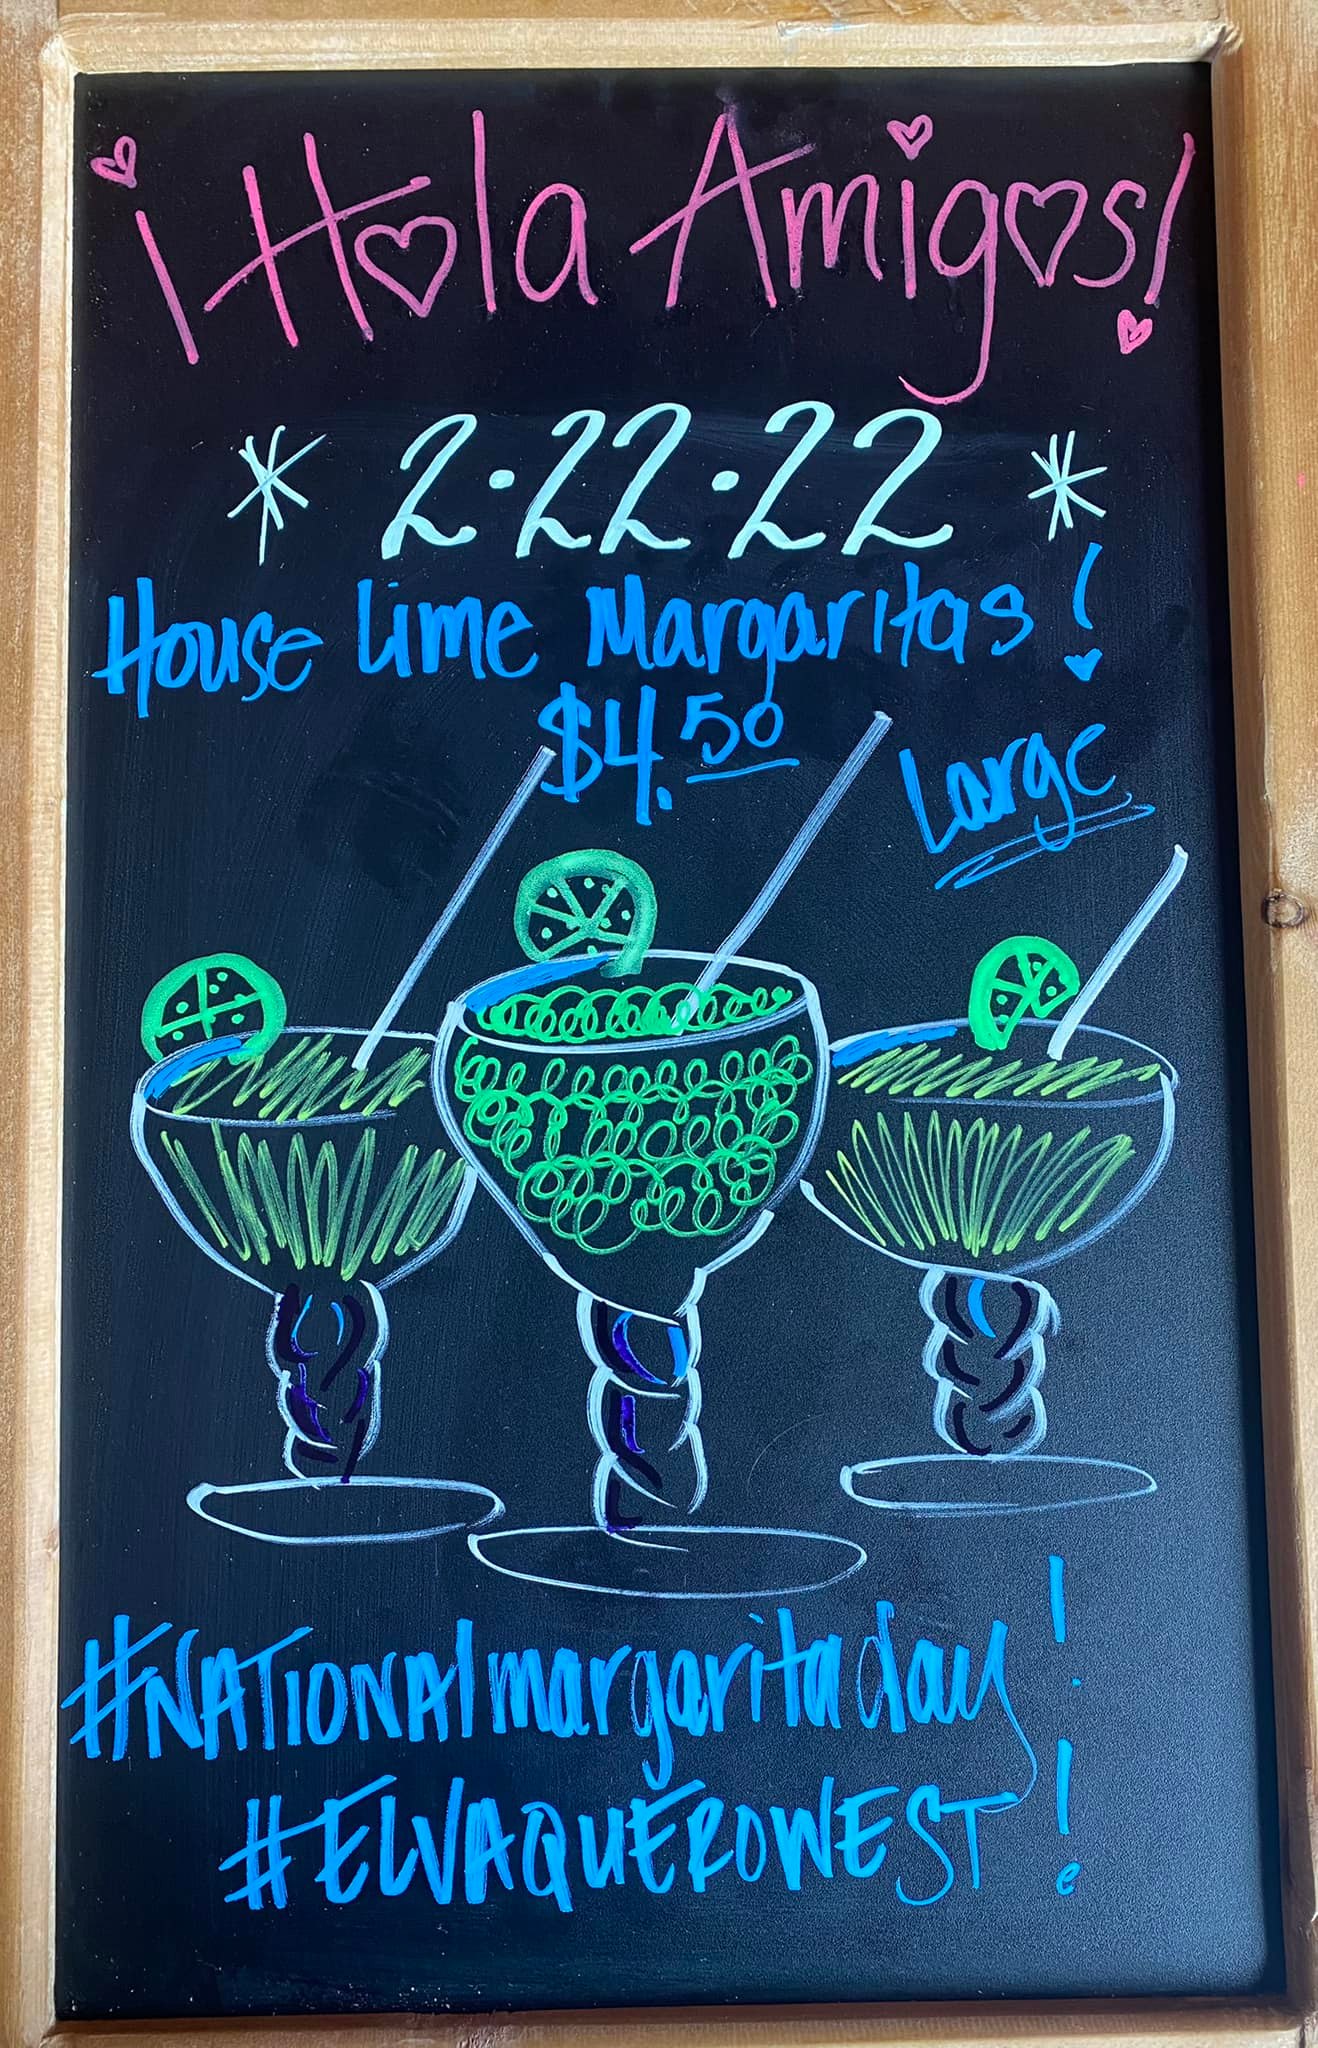 ¡Hola Amigos!
* 2·22·22 *
House Lime Margaritas!
$4.50
Large
#NATIONAlmargaritaday!
#ELVAQUEROWEST!